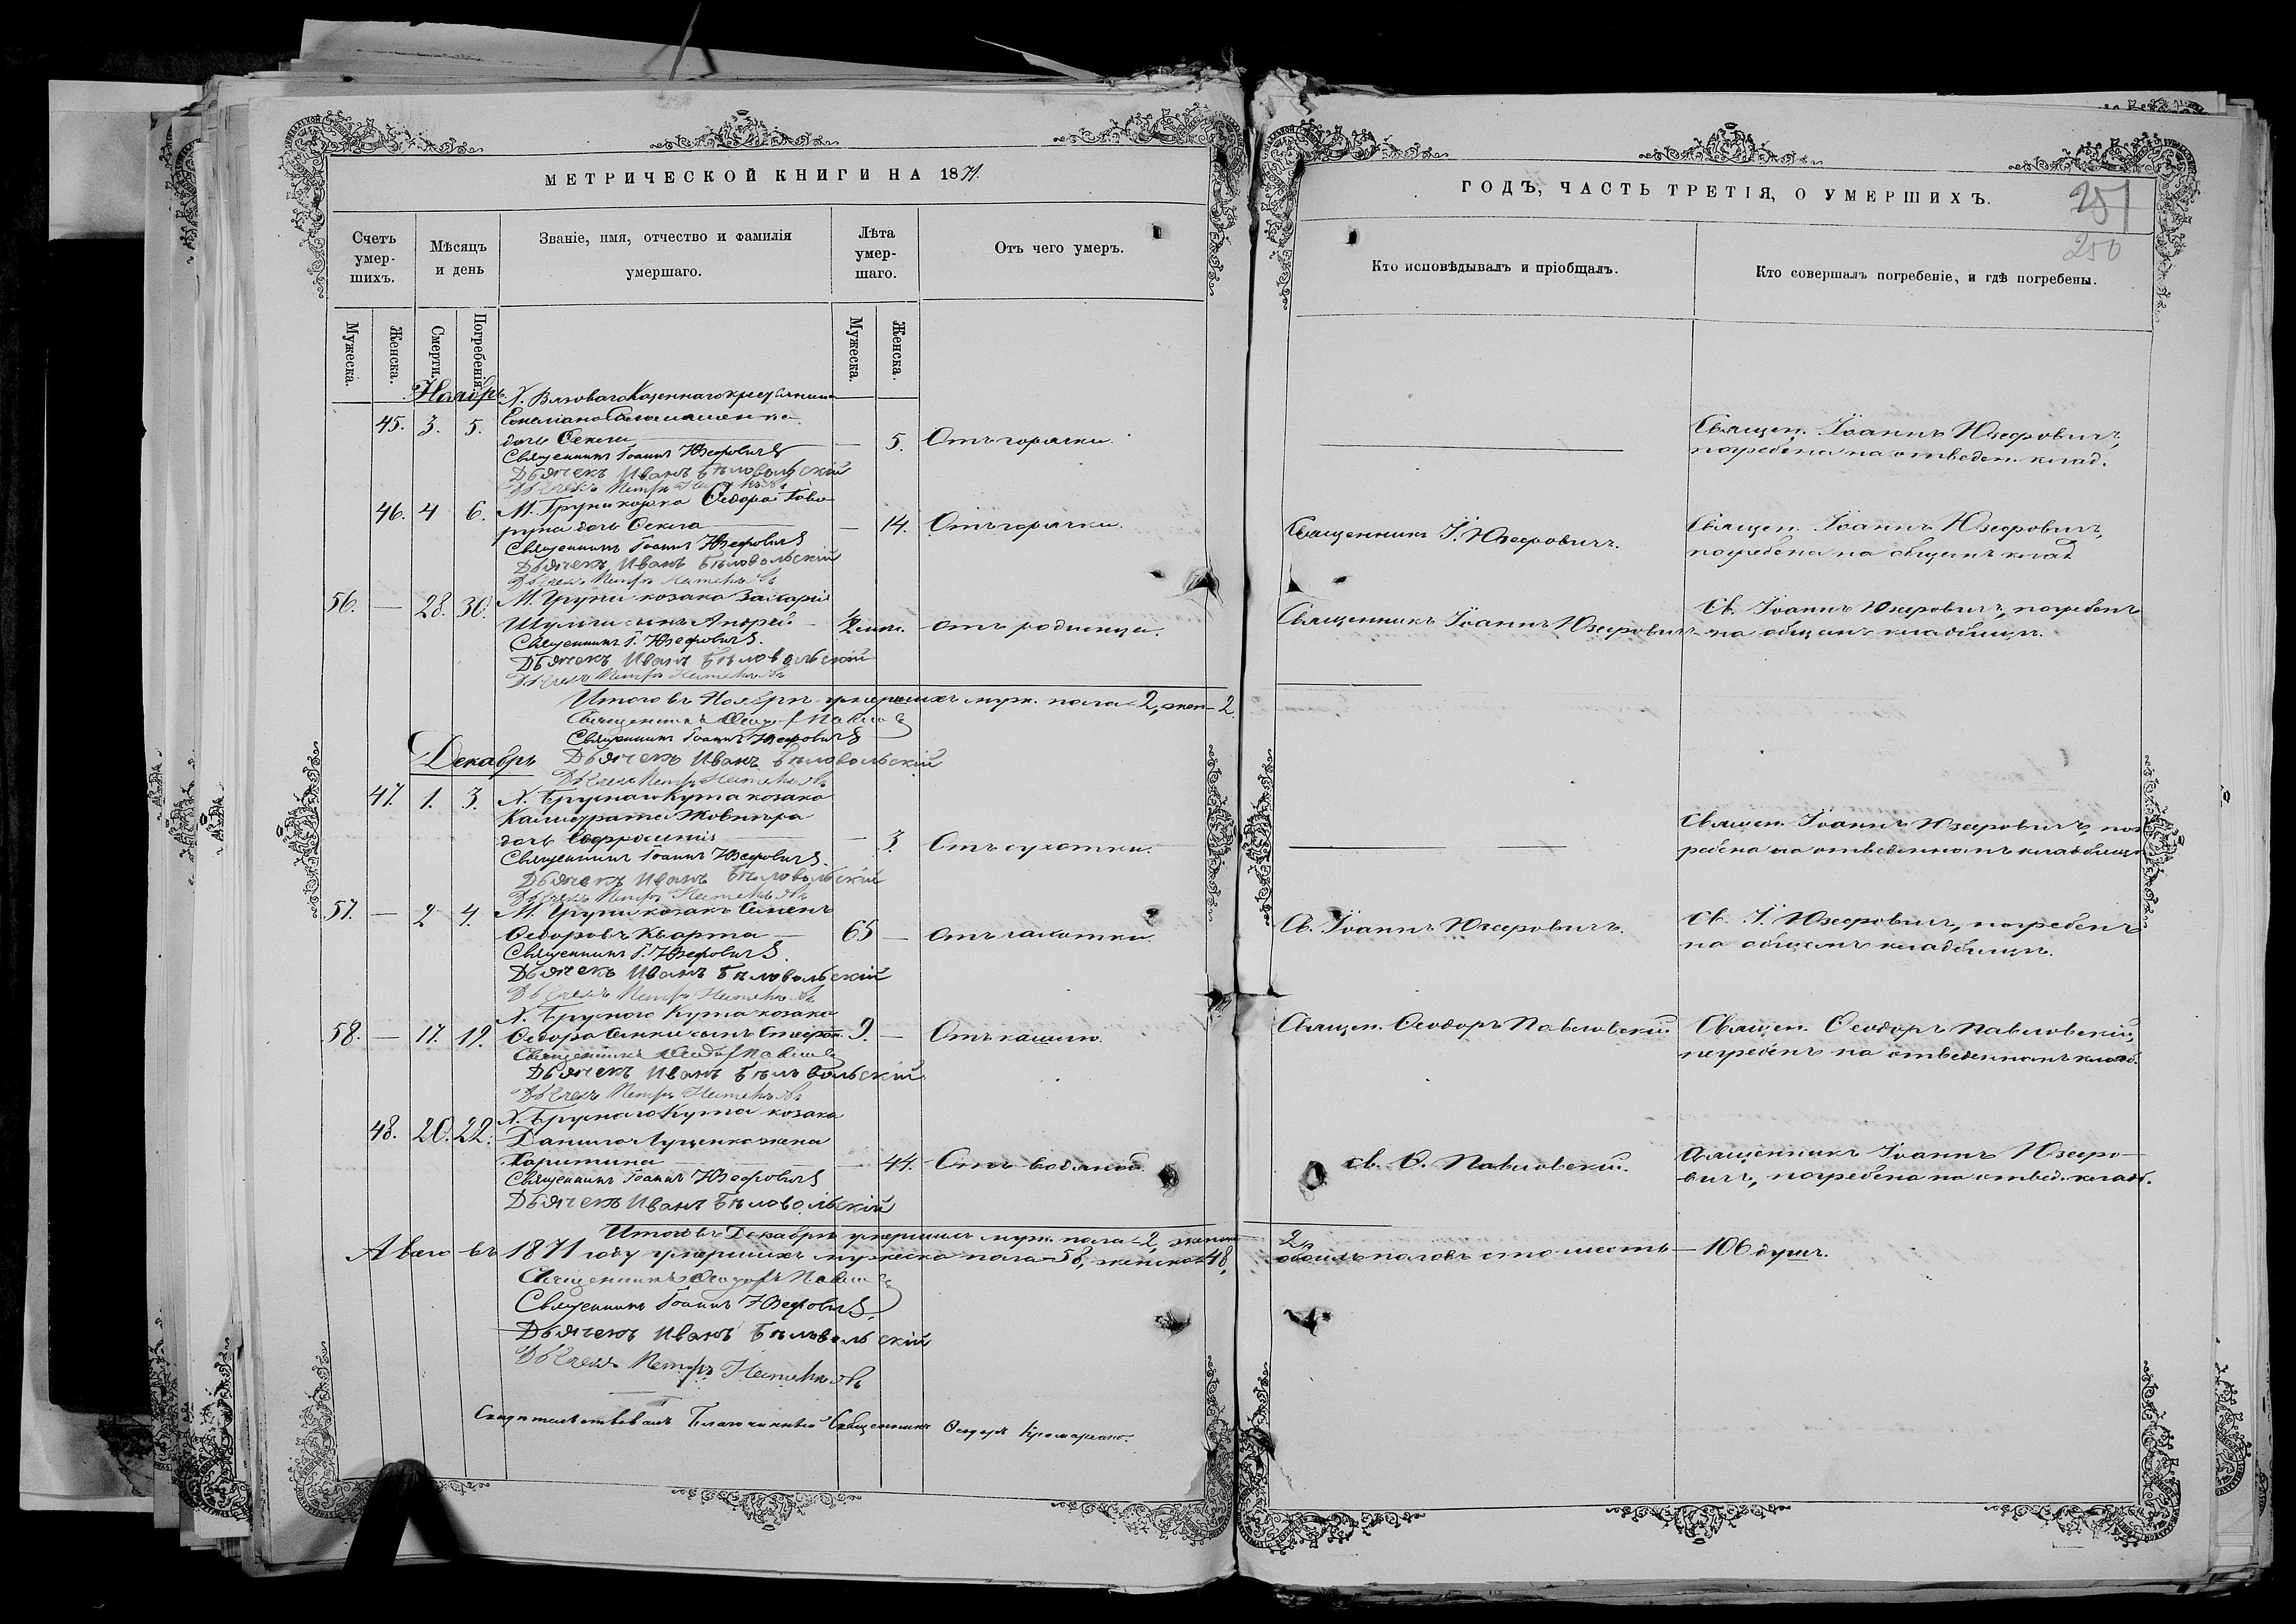 МЕТРИЧЕСКОЙ КНИГИ НА 1871.
Счетъ умер-шихъ.
Мѣсяцъ и день
Званіе, имя, отчество и фамилія умершаго.
Лѣта умер-шаго.
Отъ чего умеръ.
Мужеска.
Женска.
Смерти.
Погребенія.
Мужеска.
Женска.
Ноябрь
Х. Вязоваго Казеннаго крестьянина
45. 3. 5.
дочь Ѳекла — 5. Отъ горячки.
Священникъ Іоаннъ Юзефовичъ
Дьячекъ Иванъ Бѣловольскій
Дьячекъ Петръ
46. 4 6. М. Груни козака Ѳедора Гово-
руна дочь Ѳекла — 14. Отъ горячки.
Священникъ Іоаннъ Юзефовичъ
Дьячекъ Иванъ Бѣловольскій
Дьячекъ Петръ
56. — 28. 30. М. Груни козака Захарія
Шулги сынъ Андрей отъ родимца.
Священникъ І. Юзефовичъ.
Дьячекъ Иванъ Бѣловольскій
Дьячекъ Петръ
Итого въ Ноябрѣ умершихъ муж. пола 2, жен — 2.
Священникъ Ѳеодоръ Павлов
Священникъ Іоаннъ Юзефовичъ
Декабрь
Дьячекъ Иванъ Бѣловольскій
Дьячекъ Петръ
47. 1. 3. Х. Кута козака
Калистрата Жовнира
дочь Евфросинія — 3. Отъ сухотки.
Священникъ Іоаннъ Юзефовичъ.
Дьячекъ Иванъ Бѣловольскій
Дьячекъ Петръ
57. — 2 4. М. Груни козакъ Семенъ
Ѳедоровъ Кварта — 65 — отъ чахотки.
Священникъ І. Юзефовичъ.
Дьячекъ Иванъ Бѣловольскій
Дьячекъ Петръ
Х. Кута козака
58. — 17. 19. Ѳедора сынъ Стефан. 9. — Отъ кашлю.
Священникъ Ѳеодоръ Павлов
Дьячекъ Иванъ Бѣловольскій
Дьячекъ Петръ
Х. Кута козака
48. 20. 22. Данила Луценка жена
Харитина — 44. Отъ водяной.
Священникъ Іоаннъ Юзефовичъ
Дьячекъ Иванъ Бѣловольскій
Итого въ Декабрѣ умершихъ муж. пола 2, женск
А всего въ 1871 году умершихъ мужеска пола — 58, женска 48,
Священникъ Ѳеодоръ Павлов
Священникъ Іоаннъ Юзефовичъ
Дьячекъ Иванъ Бѣловольскій
Дьячекъ Петръ
Свидѣтельствовалъ Благочинный Священникъ Ѳеодоръ
ГОДЪ, ЧАСТЬ ТРЕТІЯ, О УМЕРШИХЪ.
251
250
Кто исповѣдывалъ и пріобщалъ.
Кто совершалъ погребеніе, и гдѣ погребены.
Священ. Іоаннъ Юзефовичъ,
погребена на отведен. клад.
Священникъ І. Юзефовичъ.
Священ. Іоаннъ Юзефовичъ,
погребена на общемъ клад
Священникъ Іоаннъ Юзефовичъ
Св. Іоаннъ Юзефовичъ, погребенъ
на общемъ кладбищѣ.
Священ. Іоаннъ Юзефовичъ, пог-
ребена на отведенномъ кладбищѣ
Св. Іоаннъ Юзефовичъ.
Св. І. Юзефовичъ, погребенъ
на общемъ кладбищѣ.
Священ. Ѳеодоръ Павловскій
Священ. Ѳеодоръ Павловскій,
погребенъ на отведенномъ кладб.
св. Ѳ. Павловскій.
Священникъ Іоаннъ Юзефо-
вичъ, погребена на отвед. кладб.
2,
обоихъ половъ сто шесть — 106 душъ.